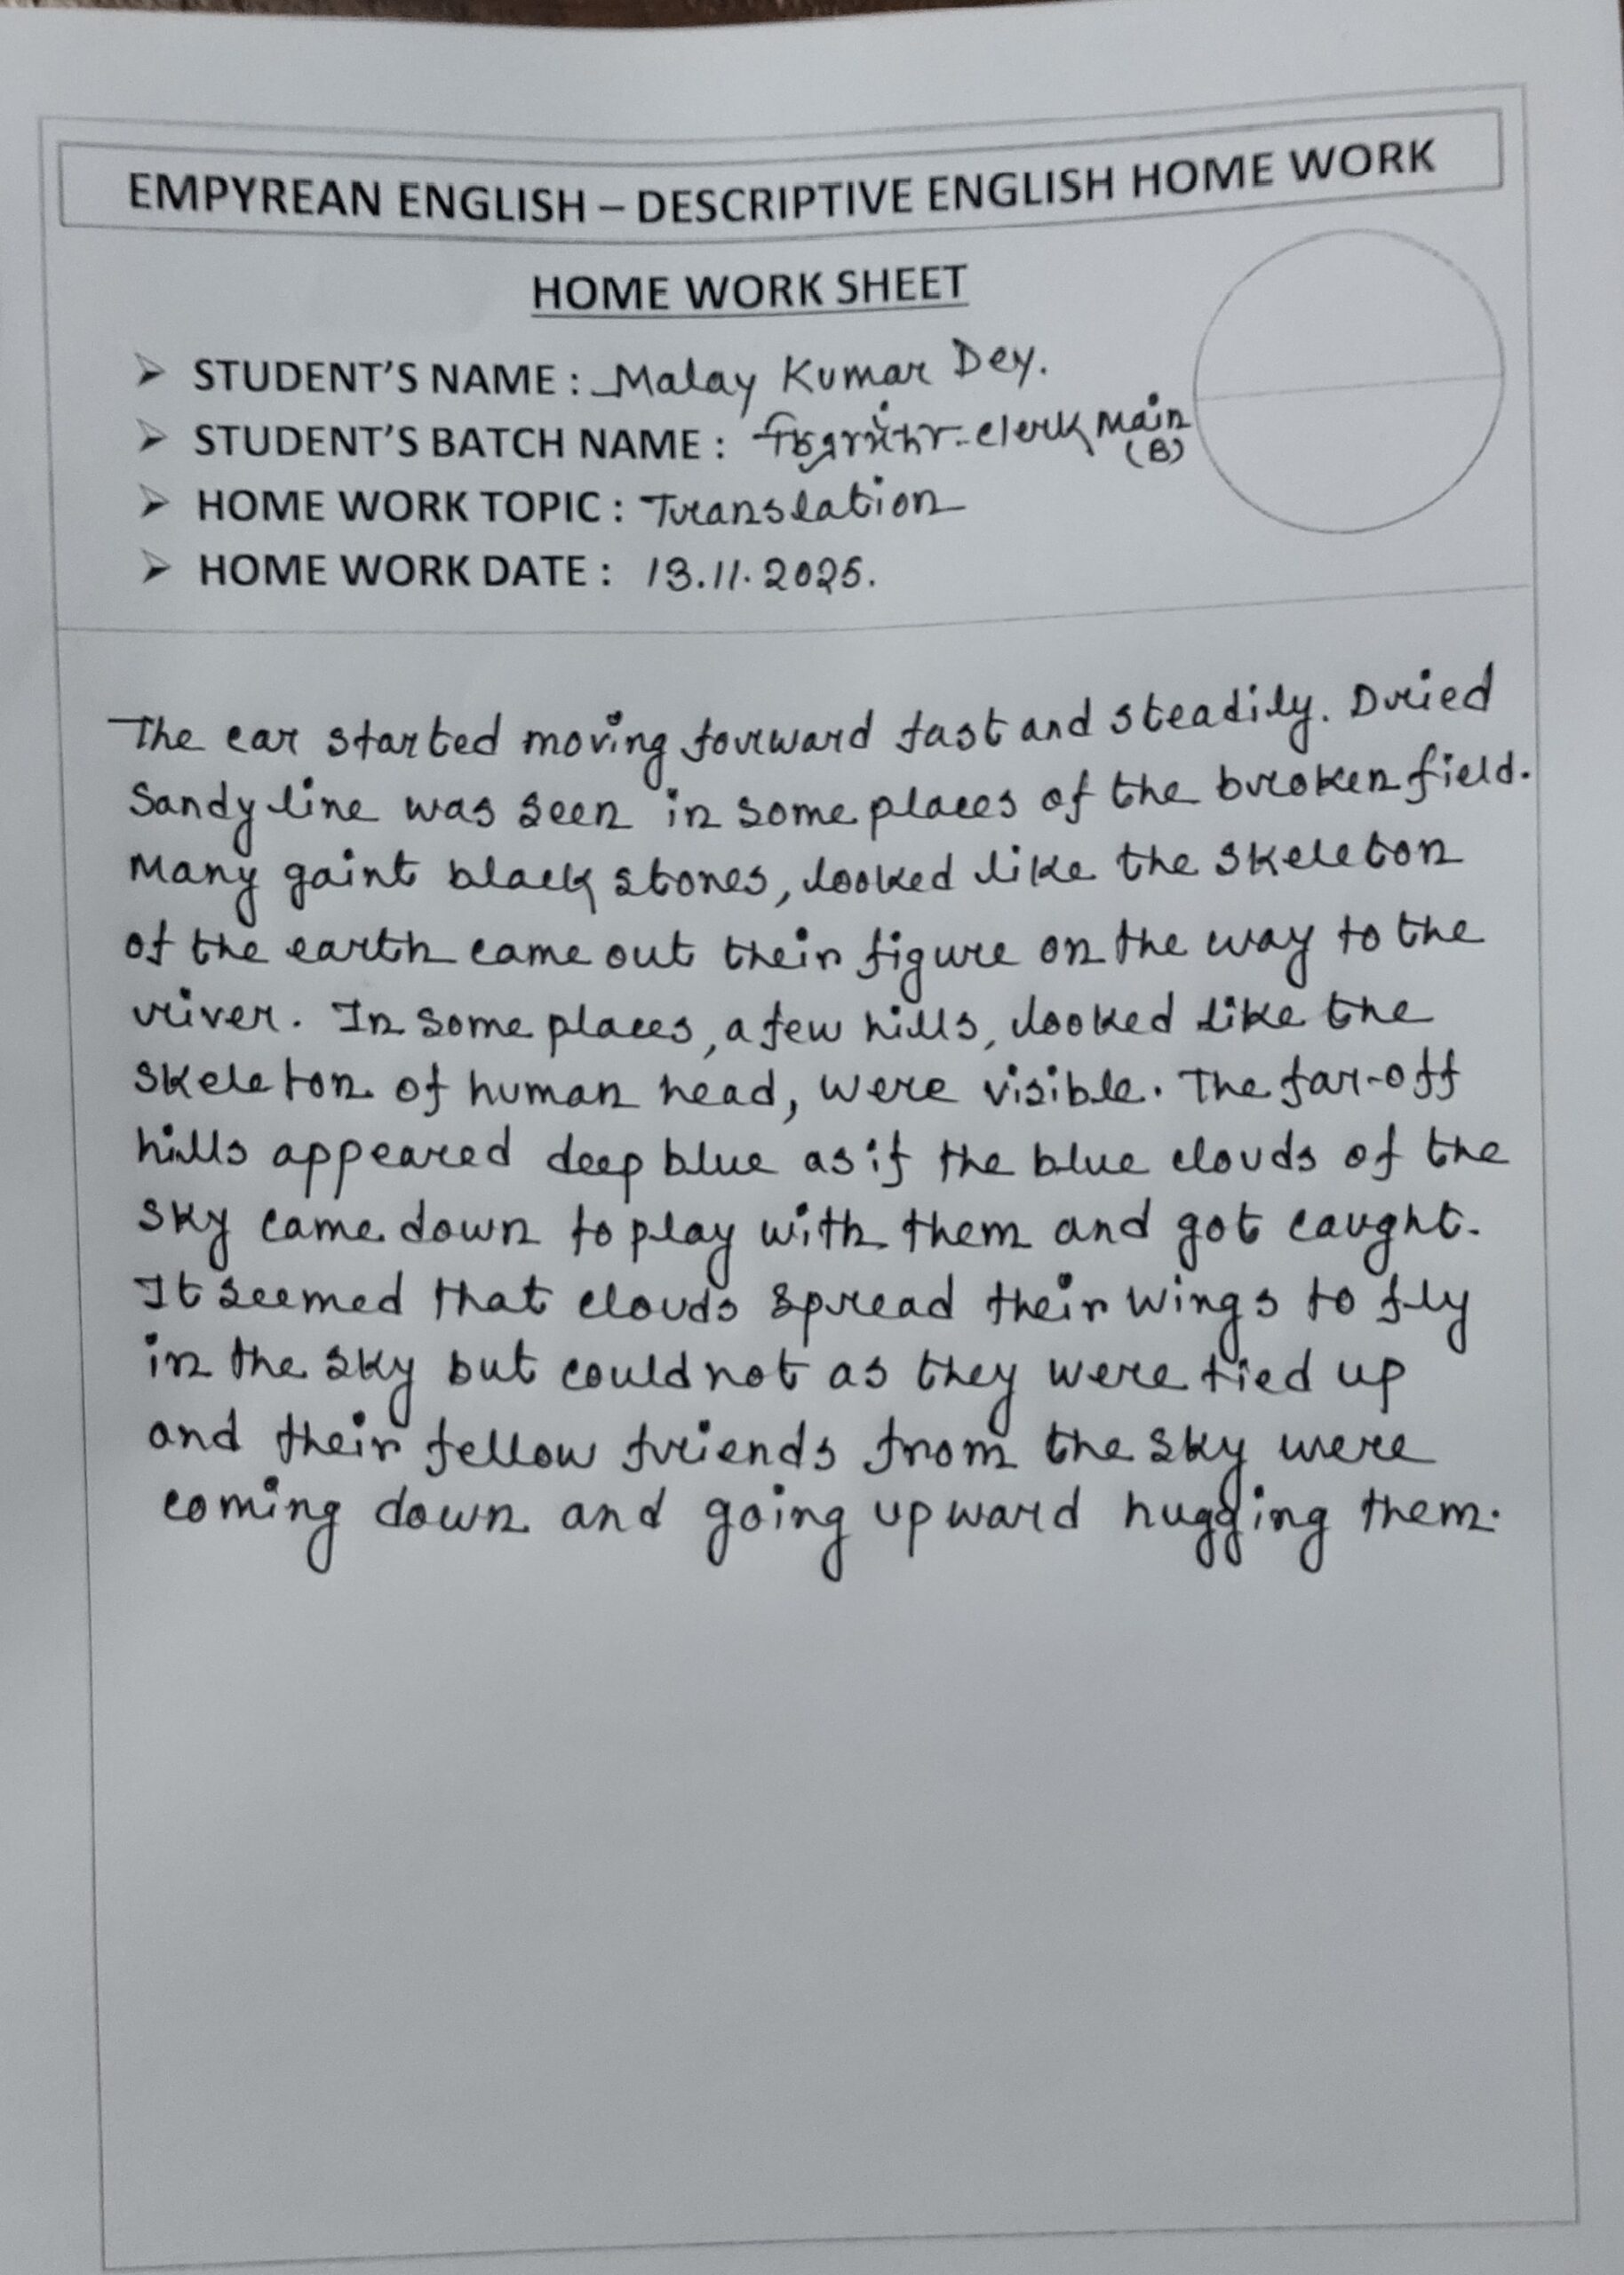 EMPYREAN ENGLISH – DESCRIPTIVE ENGLISH HOME WORK
HOME WORK SHEET
➢ STUDENT'S NAME : Malay Kumar Dey.
➢ STUDENT'S BATCH NAME : clerk Main
(B)
➢ HOME WORK TOPIC : Translation
➢ HOME WORK DATE : 13.11.2025.
The car started moving forward fast and steadily. Dried
Sandy line was seen in some places of the broken field.
Many gaint black stones, looked like the skeleton
of the earth came out their figure on the way to the
river. In some places, a few hills, looked like the
skeleton of human head, were visible. The far-off
hills appeared deep blue as if the blue clouds of the
sky came down to play with them and got caught.
It seemed that clouds spread their wings to fly
in the sky but could not as they were tied up
and their fellow friends from the sky were
coming down and going upward hugging them.